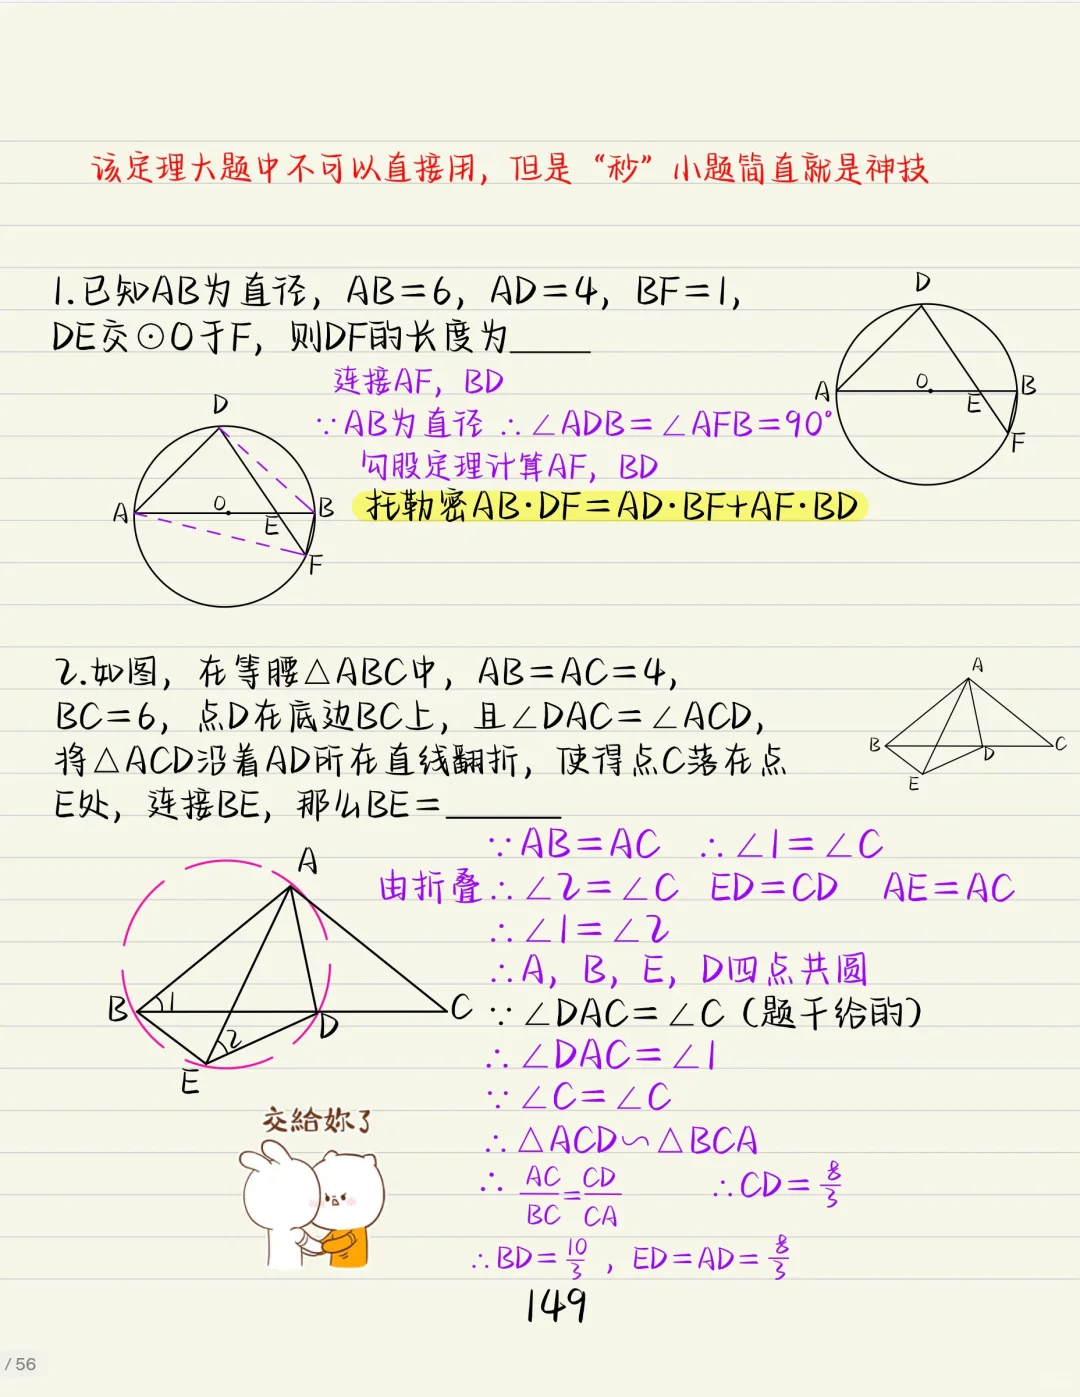 该定理大题中不可以直接用，但是“秒”小题简直就是神技
1.已知AB为直径，AB=6，AD=4，BF=1，
DE交⊙O于F，则DF的长度为____
连接AF，BD
∵AB为直径 ∴∠ADB=∠AFB=90°
勾股定理计算AF，BD
托勒密AB·DF=AD·BF+AF·BD
D
A
O
B
E
F
D
A
O
B
E
F
2.如图，在等腰△ABC中，AB=AC=4，
BC=6，点D在底边BC上，且∠DAC=∠ACD，
将△ACD沿着AD所在直线翻折，使得点C落在点
E处，连接BE，那么BE=______
A
B
C
D
E
∵AB=AC ∴∠1=∠C
由折叠∴∠2=∠C ED=CD AE=AC
∴∠1=∠2
∴A，B，E，D四点共圆
∵∠DAC=∠C（题干给的）
∴∠DAC=∠1
∵∠C=∠C
∴△ACD∽△BCA
∴AC/BC=CD/CA ∴CD=8/3
∴BD=10/3，ED=AD=8/3
A
B
1
C
D
2
E
交給妳了
149
/ 56